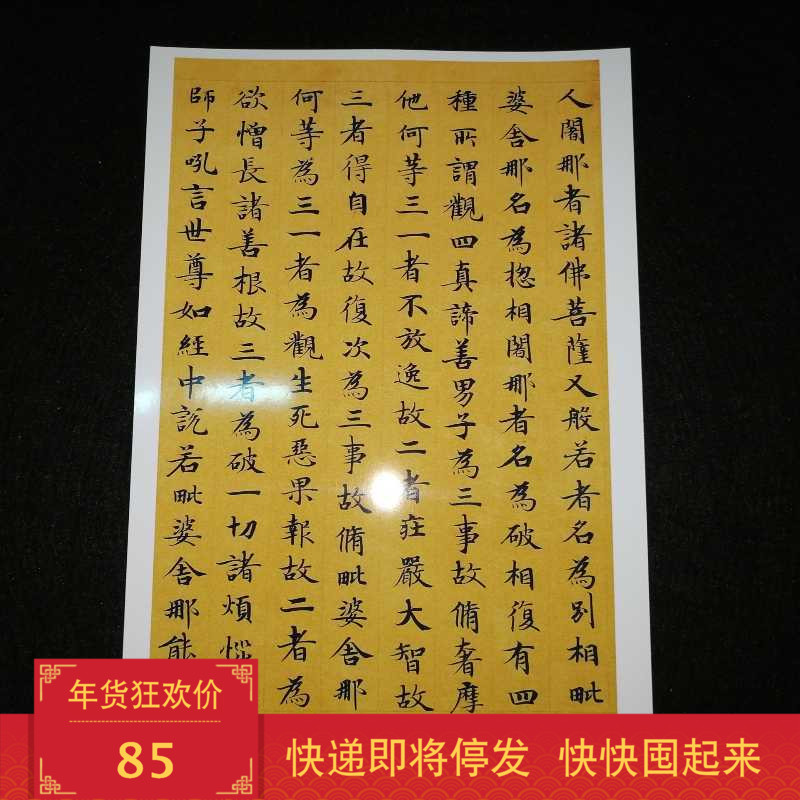 人闍那者諸佛菩薩又般若者名為別相毗
婆舍那名為揔相闍那者名為破相復有四
種所謂觀四真諦善男子為三事故脩奢摩
他何等三一者不放逸故二者莊嚴大智故
三者得自在故復次為三事故脩毗婆舍那
何等為三一者為觀生死惡果報故二者為
欲憎長諸善根故三者為破一切諸煩惱
師子吼言世尊如經中說若毗婆舍那能
年货狂欢价
85
快递即将停发 快快囤起来